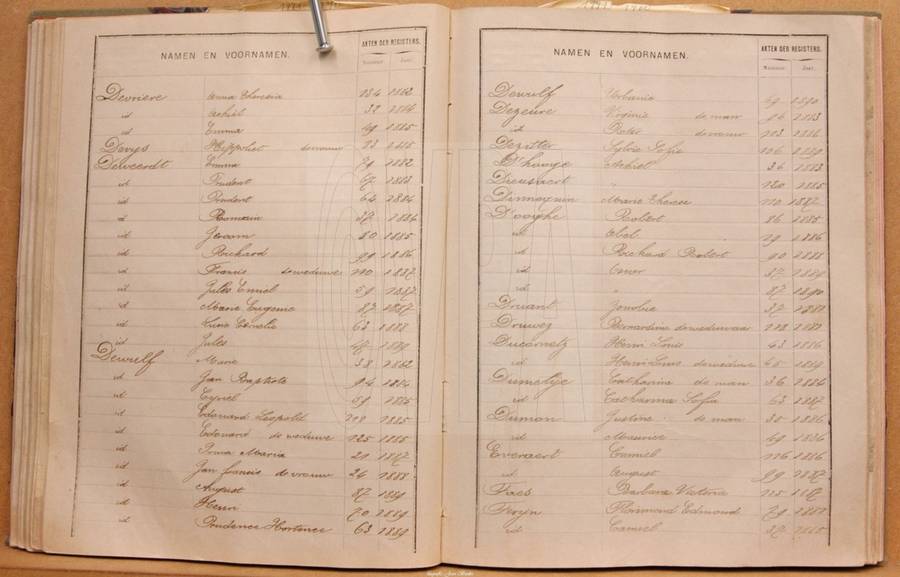 NAMEN EN VOORNAMEN. AKTEN DER REGISTERS.
Nummer Jaar.
Devriere Anna Theresia 134 1882
id Achiel 32 1884
id Emma 49 1885
Devys Hyppoliet de vrouw 23 1885
Deweerdt Emma 1882
id Prudent 67 1883
id Prudent 64 1884
id Romain 37 1884
id Jeroom 80 1885
id Richard 99 1886
id Francis de weduwe 110 1887
id Jules Emiel 59 1887
id Marie Eugenie 87 1887
id Cornelie 63 1888
id Jules 1889
Dewulf Marie 38 1882
id Jan Baptiste 94 1884
id Cyriel 59 1885
id Edouard Leopold 1885
id Edouard de weduwe 125 1885
id Maria 21 1887
id Jan francis de vrouw 26 1888
id August 87 1889
id Henri 70 1889
id Prudence Hortence 63 1889
NAMEN EN VOORNAMEN. AKTEN DER REGISTERS.
Nummer Jaar.
Dewulf Urbanie 69 1890
Dezeure Virginie de man 96 1883
id Pieter de vrouw 103 1886
Dezitter Sylvie Sofie 106 1889
D'haeye Achiel 36 1883
120 1885
Marie Therese 110 1887
D'hooghe Robert 86 1885
id Abel 29 1886
id Richard Robert 90 1888
id Omer 87 1889
id " 87 1890
Druant 37 1888
Druwez Bernardine de weduwnaar 118 1888
Ducarnetz Henri Louis 43 1886
id Henri Louis de weduwe 65 1889
Dumelije Catharina de man 36 1886
id Catharina Sofia 63 1887
Dumon Justine de man 35 1886
id Maurice 69 1886
Everaert Camiel 116 1886
id August 99 1887
Faes Barbara Victoria 125 1887
Feryn Raimond Edmond 79 1888
id Camiel 37 1885